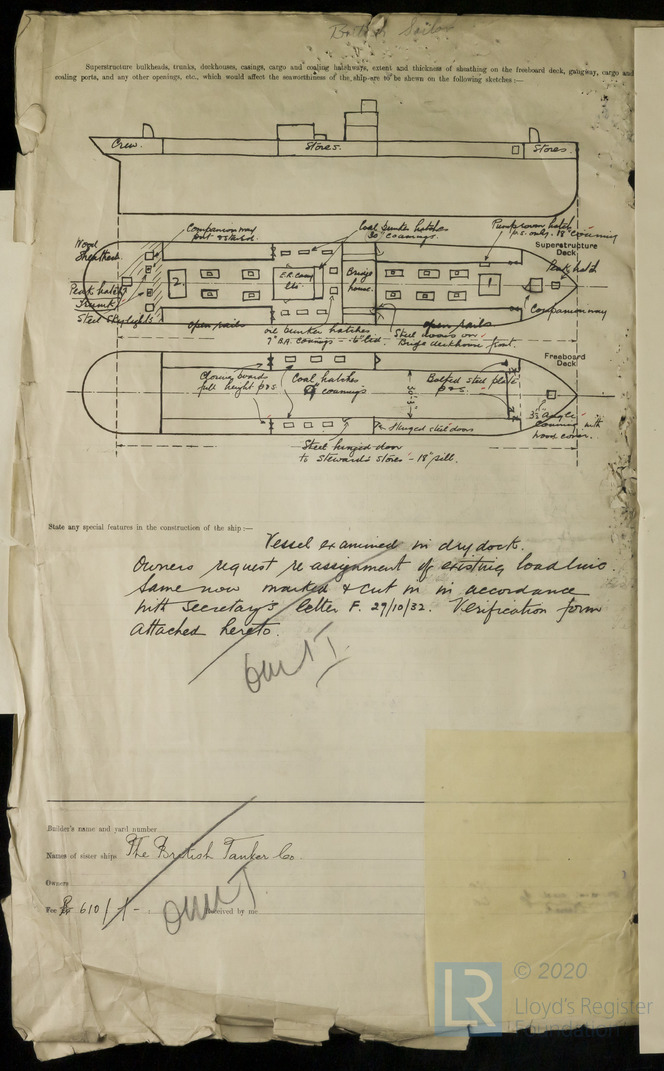 British Sailor
Superstructure bulkheads, trunks, deckhouses, casings, cargo and coaling hatchways, extent and thickness of sheathing on the freeboard deck, gangway, cargo and
coaling ports, and any other openings, etc., which would affect the seaworthiness of the ship are to be shewn on the following sketches:—
Crew.
Stores.
Stores.
Companion way
port & starbd.
Coal bunker hatches
30" coamings.
Pumproom hatch
p.s. only. 18" coaming
Wood
Sheathed.
Superstructure
Deck
Peak hatch
2.
E.R. casing
Bridge
house.
1
Peak hatch
Trunk
Steel Skylights
Companion way
open rails
oil bunker hatches
7" B.A. coamings
open rails
Steel doors on
Bridge deckhouse front.
Freeboard
Deck
Closing boards
full height p&s.
Coal hatches
coamings
30'-3"
Bolted steel plate
p & s.
3½" angle
coaming with
wood cover.
Hinged steel doors
Steel hinged door
to Steward's stores - 18" sill.
State any special features in the construction of the ship:—
Vessel examined in dry dock.
Owners request re assignment of existing loadline.
Same now marked & cut in in accordance
with Secretary's letter F. 29/10/32. Verification form
attached hereto.
Omit
Builder's name and yard number
Names of sister ships The British Tanker Co.
Owners
Fee £ 610/-/- Received by me
Omit
LR © 2020
Lloyd's Register
Foundation